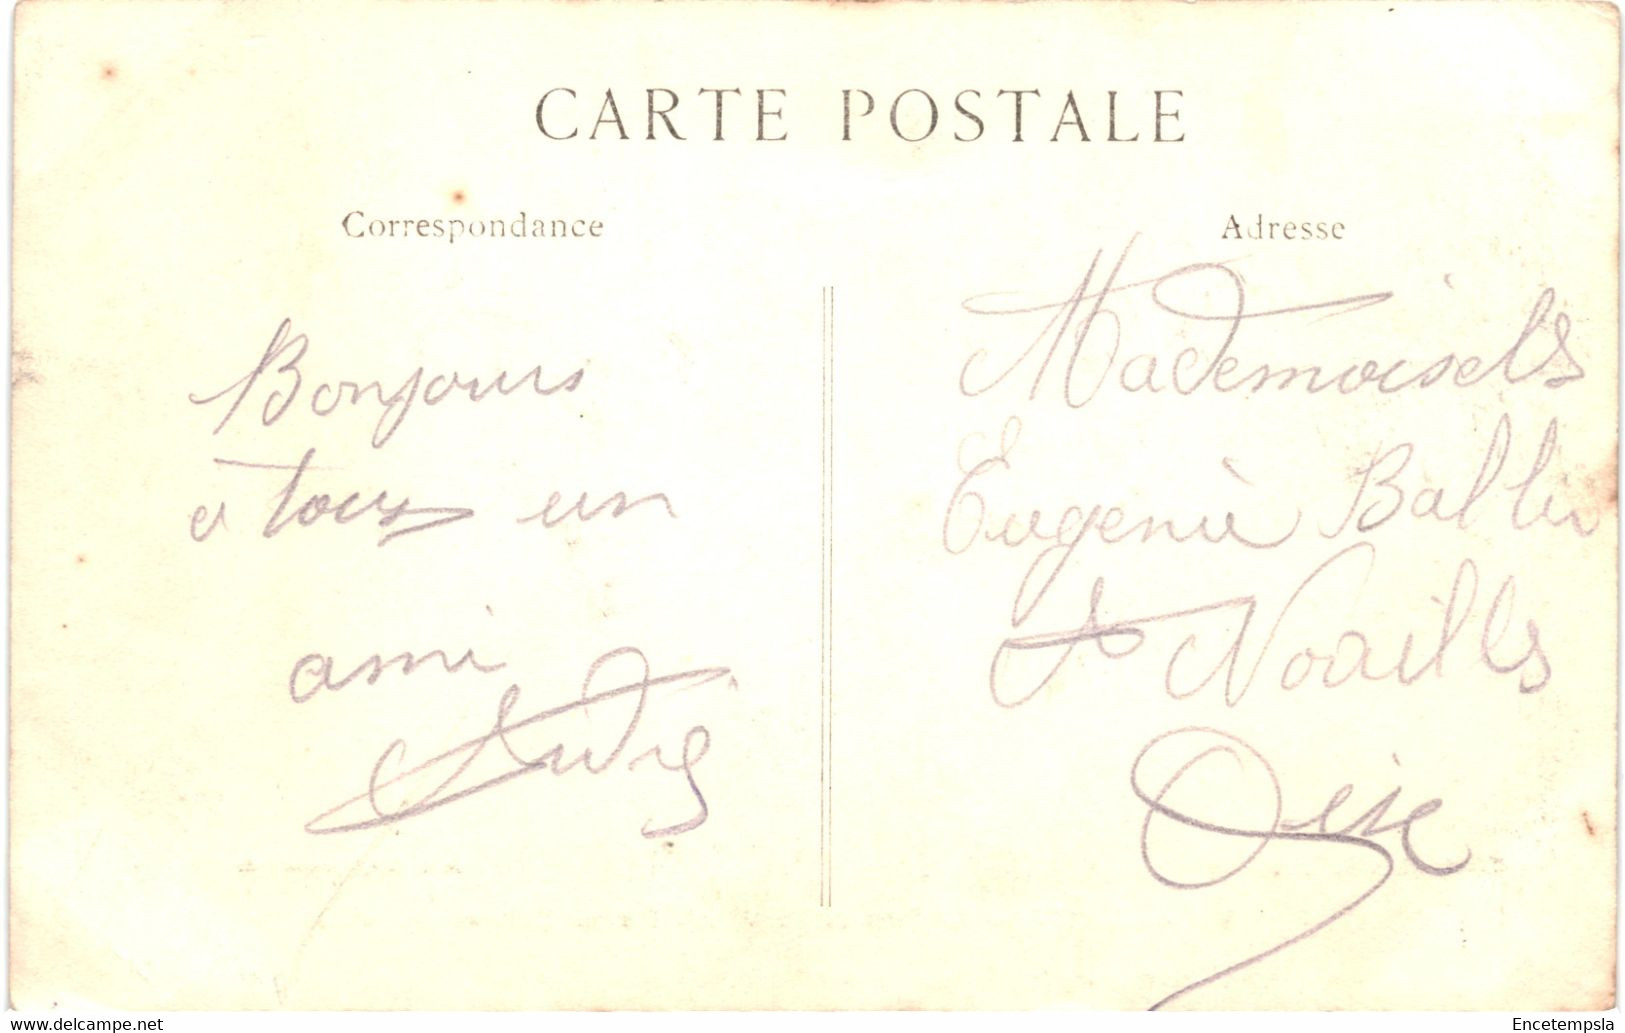 CARTE POSTALE
Correspondance
Bonjours
à tous un
ami
Adresse
Mademoiselle
Eugenie
à Noailles
Oise
www.delcampe.net
Encetempsla